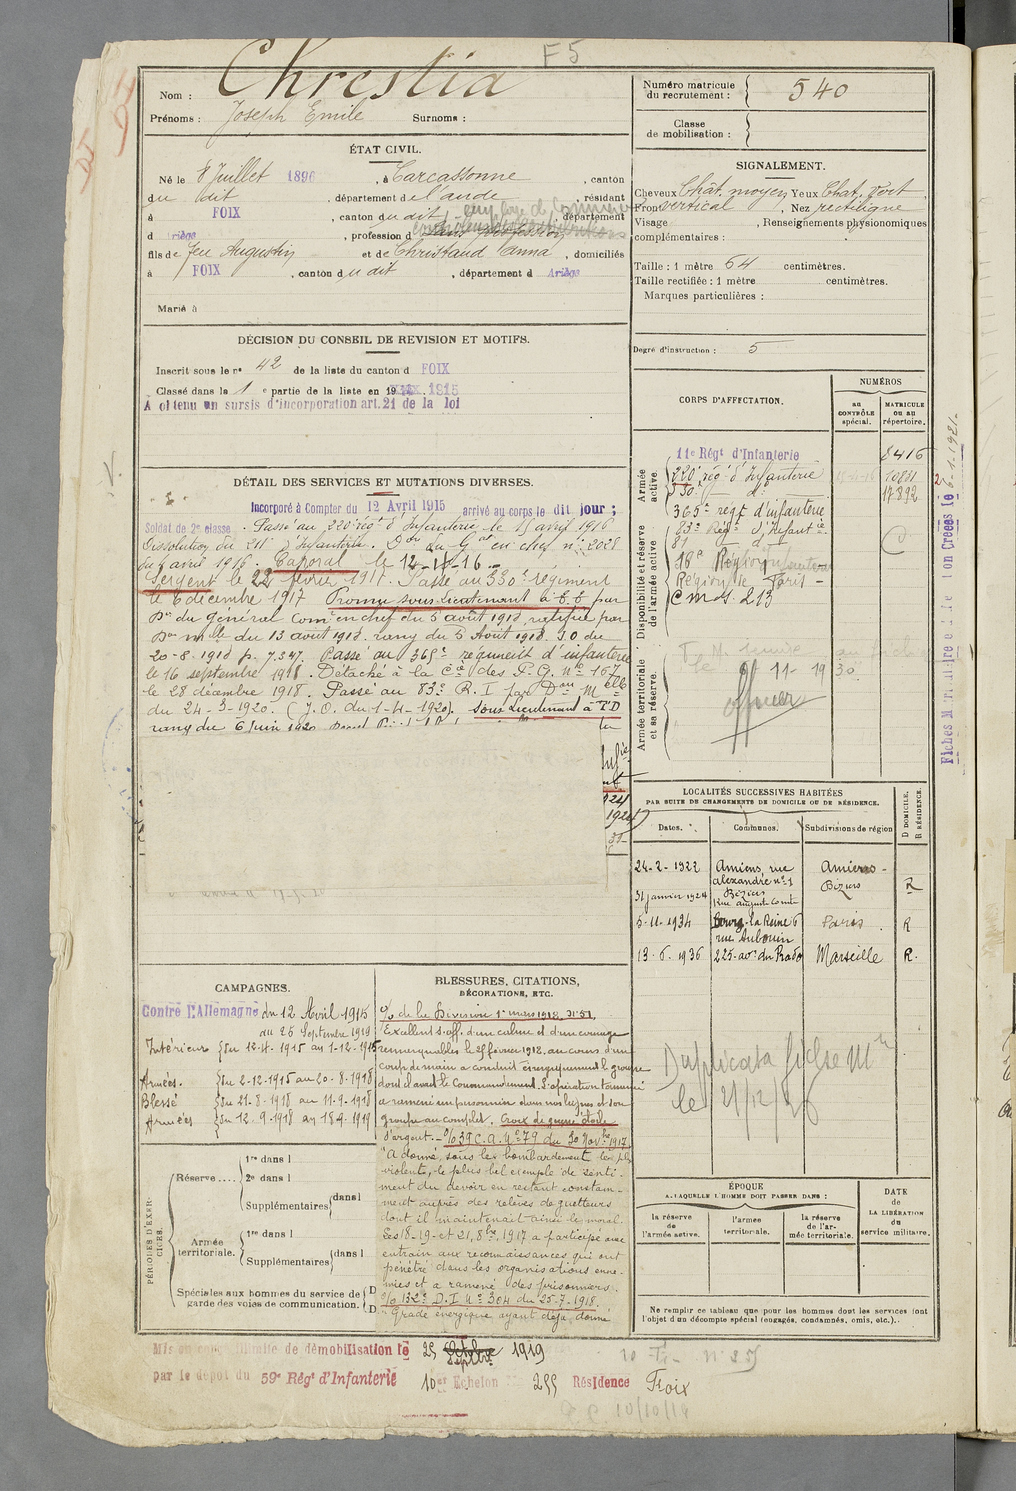 F5
Nom : Chrestia
Prénoms : Joseph Emile Surnoms :
Numéro matricule du recrutement : 540
Classe de mobilisation :
ÉTAT CIVIL.
Né le 8 Juillet 1896, à Carcassonne, canton
du dit, département de l'aude, résidant
à FOIX, canton du dit, département
d Ariège, profession d
fils de feu Augustin et de Christaud Anna, domiciliés
à FOIX, canton du dit, département d Ariège
Marié à
SIGNALEMENT.
Cheveux Chât. moyen Yeux Chat. vert
Front vertical, Nez rectiligne
Visage , Renseignements physionomiques
complémentaires :
Taille : 1 mètre 64 centimètres.
Taille rectifiée : 1 mètre centimètres.
Marques particulières :
Degré d'instruction : 5
DÉCISION DU CONSEIL DE REVISION ET MOTIFS.
Inscrit sous le no 42 de la liste du canton d FOIX
Classé dans la 1 e partie de la liste en 19 1915
A obtenu un sursis d'incorporation art. 21 de la loi
DÉTAIL DES SERVICES ET MUTATIONS DIVERSES.
Incorporé à Compter du 12 Avril 1915 arrivé au corps le dit jour ;
Soldat de 2e classe. Passé au 220e régt d'Infanterie le 15 avril 1916
Dissolution du 211e d'Infanterie. Don du Gal en chef no 2028
du 6 avril 1916. Caporal le 12-11-16.
Sergent le 22 février 1917. Passé au 330e régiment
le 6 décembre 1917 Promu sous Lieutenant à T.T. par
Don du général Comt en chef du 5 août 1918, ratifié par
Don mlle du 13 août 1918. rang du 5 Août 1918. J.O. du
20-8-1918 p. 7.347. Passé au 365e régiment d'infanterie
le 16 septembre 1918. Détaché à la Cie des P.G. no 167
le 28 décembre 1918. Passé au 83e R.I par Don Melle
du 24-3-1920. (J.O. du 1-4-1920). Sous Lieutenant à T.D
rang du 6 Juin 1920
CORPS D'AFFECTATION.
NUMÉROS
au CONTRÔLE spécial.
MATRICULE OU AU répertoire.
Armée active.
11e Régt d'Infanterie 8416
220e rég. d'Infanterie 10831
330e do 17892
Disponibilité et réserve de l'armée active.
365e regt d'infanterie
83e Rég. d'Infanterie
18e Région
Région de Paris -
Cmdt 213
Armée territoriale et sa réserve.
11-1930
officier
LOCALITÉS SUCCESSIVES HABITÉES
PAR SUITE DE CHANGEMENTS DE DOMICILE OU DE RÉSIDENCE.
Dates. Communes. Subdivisions de région D DOMICILE. R RÉSIDENCE.
24-2-1922 Amiens, rue alexandre no 1 Amiens -
31 janvier 1924 Béziers Rue august Comte Béziers R
5-11-1934 Bourg-la-Reine 6 rue Aubouin Paris R
13-6-1936 225 av. du Prado Marseille R.
Duplicata fiche Mre
le 21/12/
CAMPAGNES.
Contre l'Allemagne du 12 Avril 1915
au 25 Septembre 1919
Intérieur du 12-4-1915 au 1-12-1915
Armées. du 2-12-1915 au 20-8-1918
Blessé du 21-8-1918 au 11-9-1918
Armées du 12-9-1918 au 18-4-1919
BLESSURES, CITATIONS,
DÉCORATIONS, ETC.
O/ de la Division 1er mars 1918. No 51.
"Excellent s/off. d'un calme et d'un courage
remarquables le 25 février 1918, au cours d'un
coup de main a conduit énergiquement le groupe
dont il avait le Commandement. L'opération terminée
a ramené un prisonnier dans nos lignes et son
groupe au complet. Croix de guerre étoile
d'argent. - O/ 39 C.A. No 79 du 30 Novbre 1917.
"A donné, sous les bombardements les plus
violents, le plus bel exemple de senti-
ment du devoir en restant constam-
ment auprès des relèves de guetteurs
dont il maintenait ainsi le moral.
Les 18-19 et 21, 8bre 1917 a participé avec
entrain aux reconnaissances qui ont
pénétré dans les organisations enne-
mies et a ramené des prisonniers.
O/ 132e D.I No 304 du 25-7-1918.
"Gradé énergique ayant déjà donné
PÉRIODES D'EXERCICES.
Réserve.... 1re dans l
2e dans l
Supplémentaires dans l
Armée territoriale. 1re dans l
Supplémentaires dans l
Spéciales aux hommes du service de garde des voies de communication. D D
ÉPOQUE
A LAQUELLE L'HOMME DOIT PASSER DANS :
la réserve de l'armée active.
l'armée territoriale.
la réserve de l'armée territoriale.
DATE de LA LIBÉRATION du service militaire.
Ne remplir ce tableau que pour les hommes dont les services font
l'objet d'un décompte spécial (engagés, condamnés, omis, etc.).
Mis en congé illimité de démobilisation le 25 Septbre 1919
par le dépôt du 59e Régt d'Infanterie 10er Echelon 255 Résidence Foix